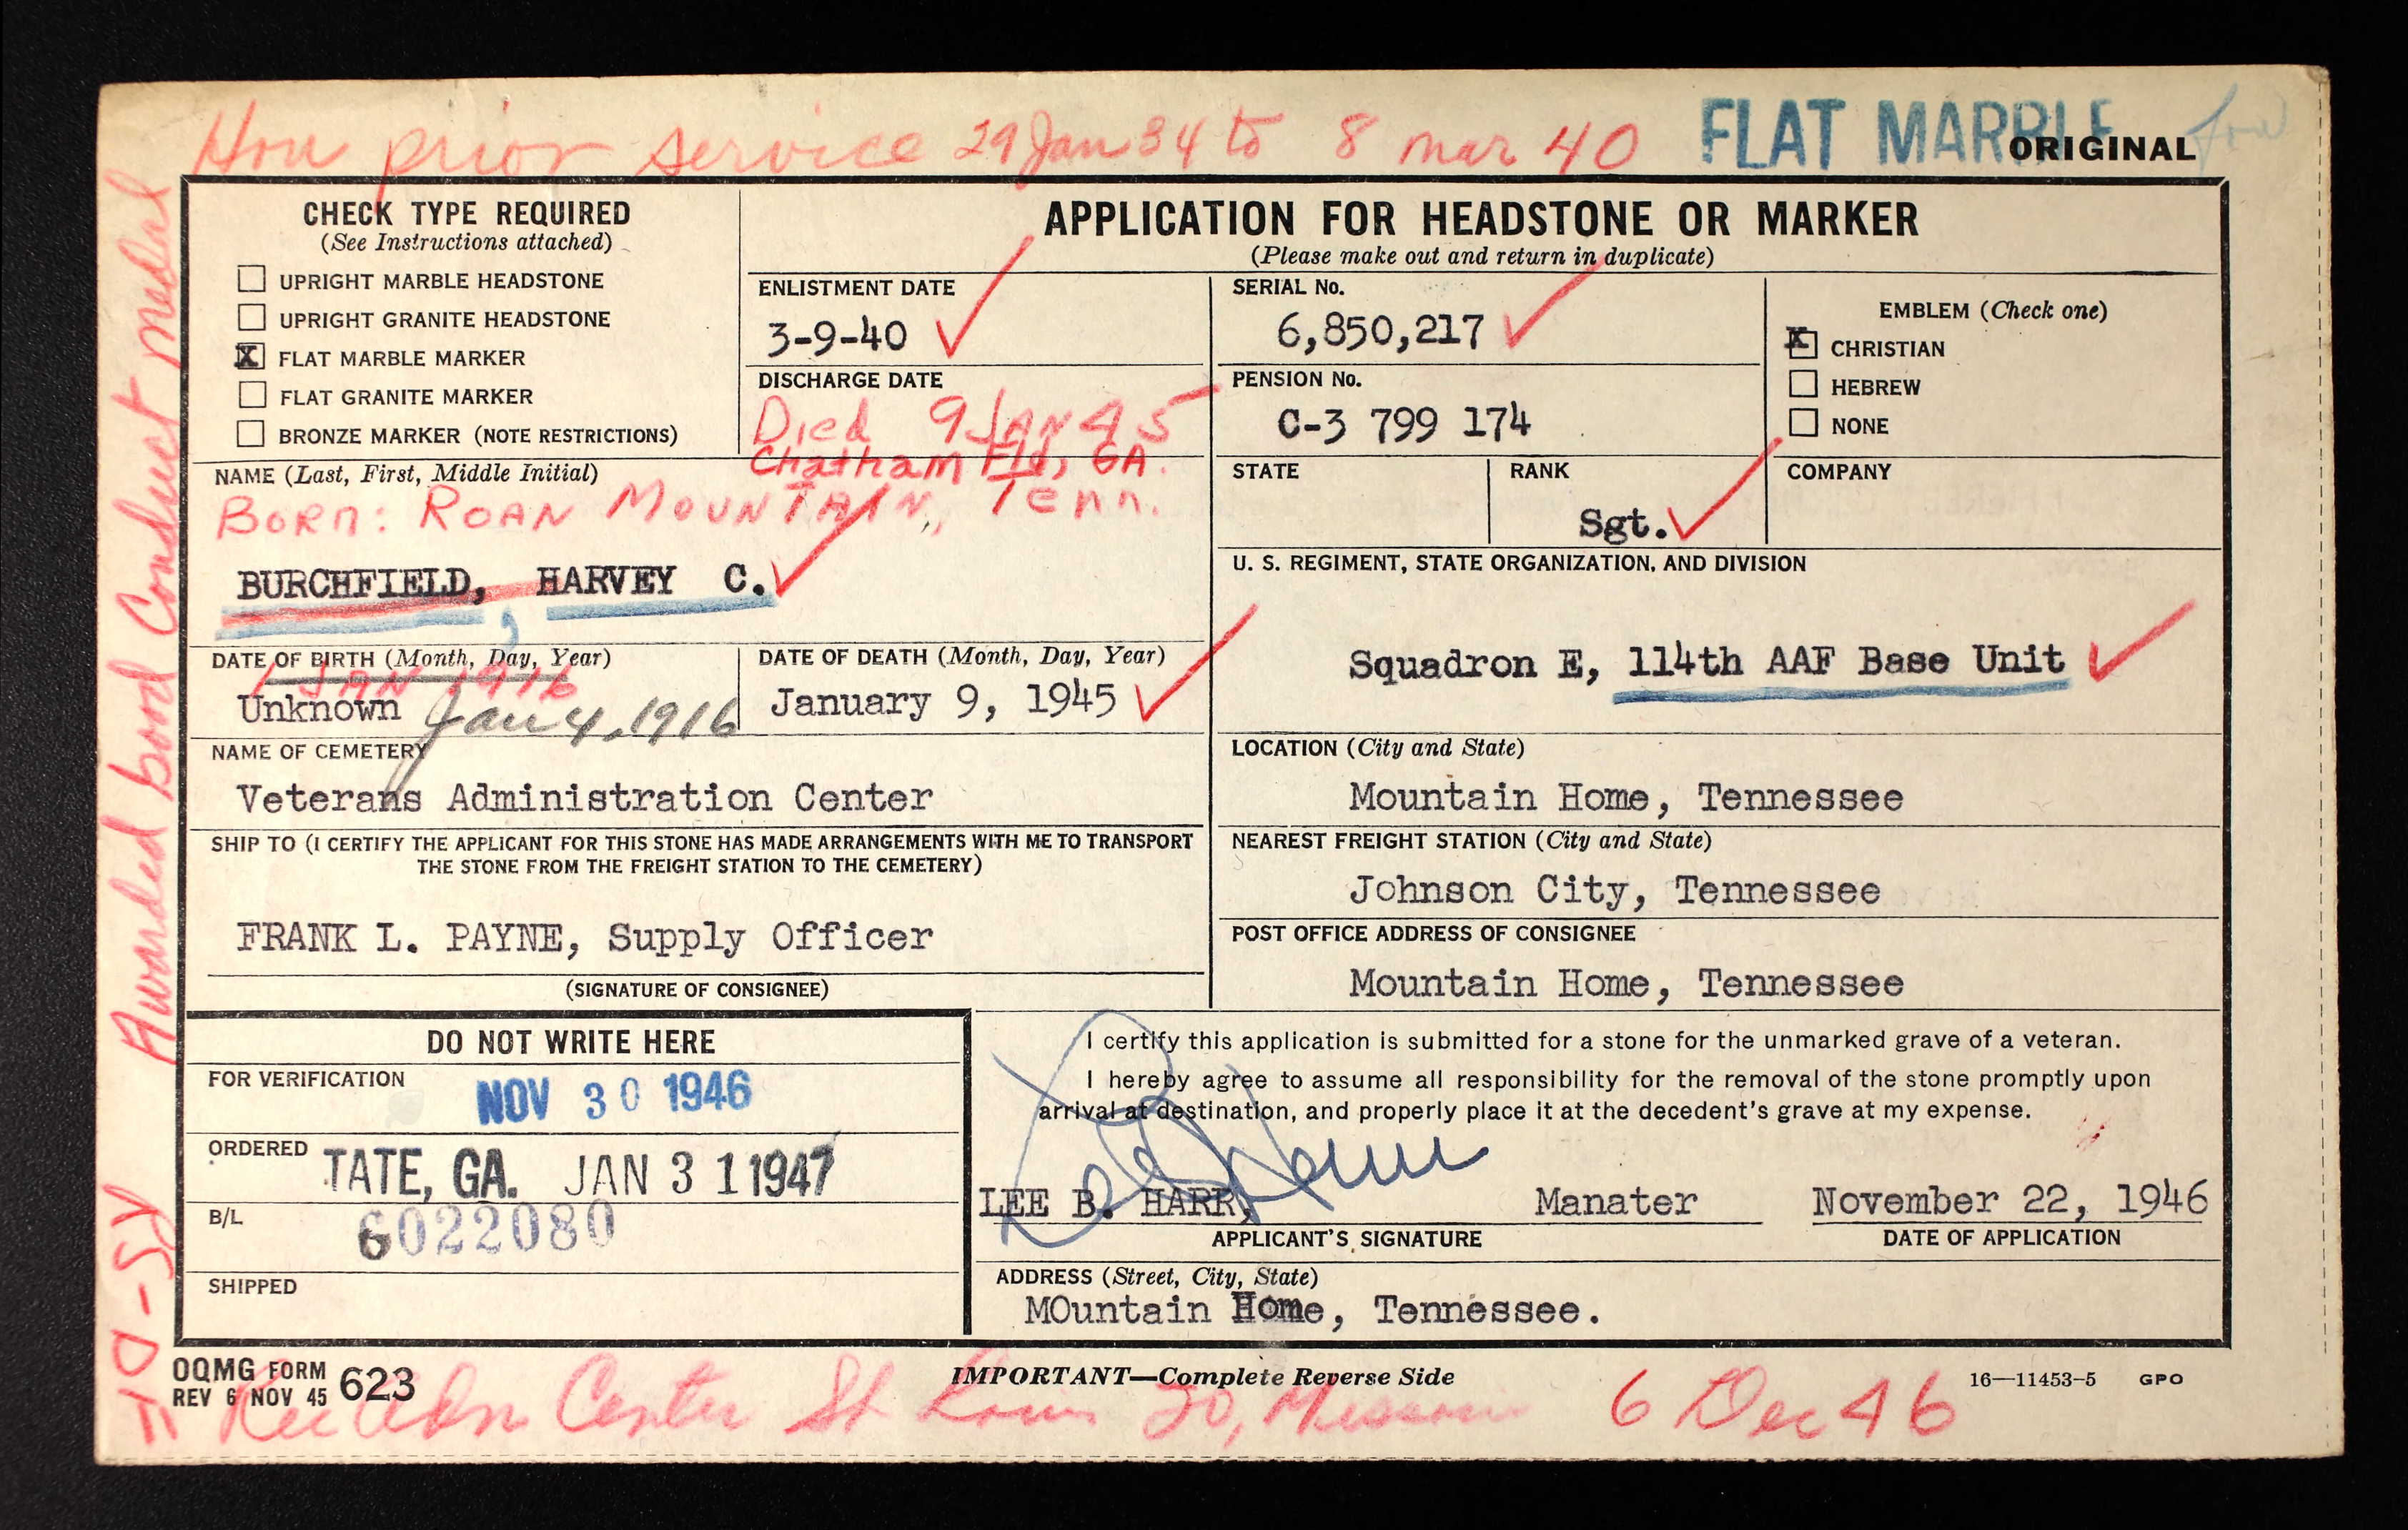 Hon prior service 29 Jan 34 to 8 Mar 40
FLAT MARBLE
ORIGINAL
Awarded Good Conduct medal
CHECK TYPE REQUIRED
(See Instructions attached)
UPRIGHT MARBLE HEADSTONE
UPRIGHT GRANITE HEADSTONE
X FLAT MARBLE MARKER
FLAT GRANITE MARKER
BRONZE MARKER (NOTE RESTRICTIONS)
APPLICATION FOR HEADSTONE OR MARKER
(Please make out and return in duplicate)
ENLISTMENT DATE
3-9-40
SERIAL No.
6,850,217
EMBLEM (Check one)
X CHRISTIAN
HEBREW
NONE
DISCHARGE DATE
Died 9 JAN 45
Chatham Fld, GA.
PENSION No.
C-3 799 174
NAME (Last, First, Middle Initial)
Born: ROAN MOUNTAIN, Tenn.
BURCHFIELD, HARVEY C.
STATE
RANK
Sgt.
COMPANY
U. S. REGIMENT, STATE ORGANIZATION, AND DIVISION
Squadron E, 114th AAF Base Unit
DATE OF BIRTH (Month, Day, Year)
1 JAN 1916
Unknown Jan 4, 1916
DATE OF DEATH (Month, Day, Year)
January 9, 1945
NAME OF CEMETERY
Veterans Administration Center
LOCATION (City and State)
Mountain Home, Tennessee
SHIP TO (I CERTIFY THE APPLICANT FOR THIS STONE HAS MADE ARRANGEMENTS WITH ME TO TRANSPORT
THE STONE FROM THE FREIGHT STATION TO THE CEMETERY)
FRANK L. PAYNE, Supply Officer
(SIGNATURE OF CONSIGNEE)
NEAREST FREIGHT STATION (City and State)
Johnson City, Tennessee
POST OFFICE ADDRESS OF CONSIGNEE
Mountain Home, Tennessee
DO NOT WRITE HERE
FOR VERIFICATION
NOV 30 1946
ORDERED
TATE, GA. JAN 31 1947
B/L
6022080
SHIPPED
I certify this application is submitted for a stone for the unmarked grave of a veteran.
I hereby agree to assume all responsibility for the removal of the stone promptly upon
arrival at destination, and properly place it at the decedent's grave at my expense.
LEE B. HARR, Manater November 22, 1946
APPLICANT'S SIGNATURE
DATE OF APPLICATION
ADDRESS (Street, City, State)
MOuntain Home, Tennessee.
OQMG FORM 623
REV 6 NOV 45
IMPORTANT—Complete Reverse Side
16—11453-5 GPO
Center St Louis 20, Missouri 6 Dec 46